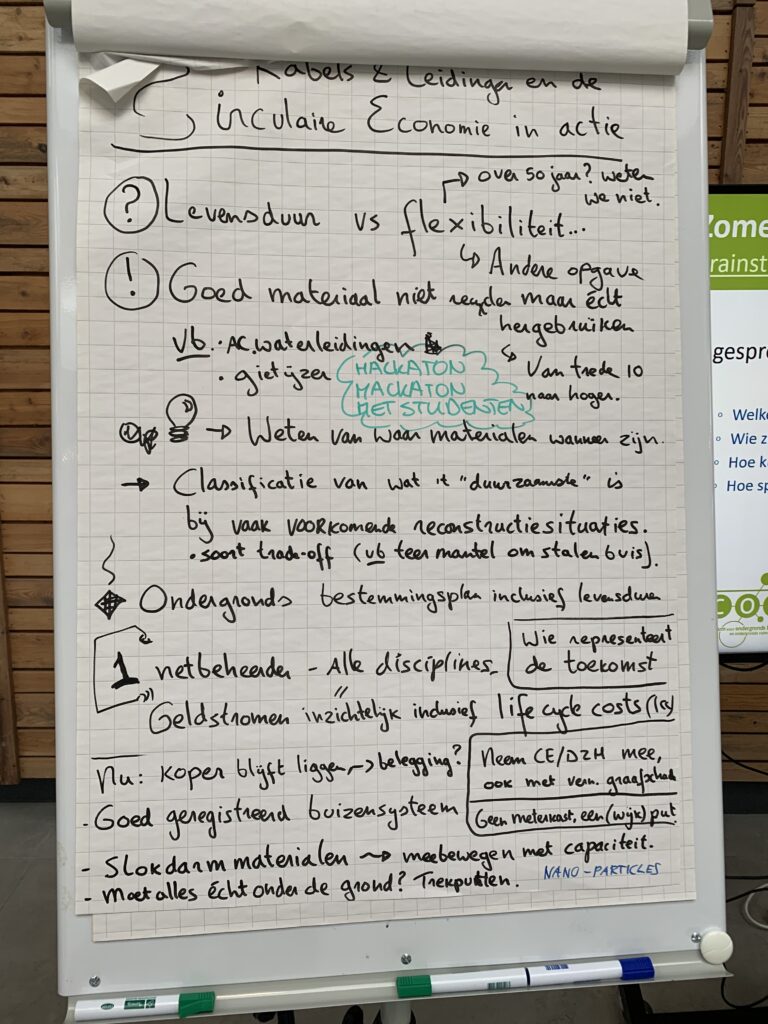 Kabels & Leidingen en de
Circulaire Economie in actie
over 50 jaar? weten
we niet.
? Levensduur vs flexibiliteit...
Andere opgave
! Goed materiaal niet maar écht
hergebruiken
vb. • AC. waterleidingen
• gietijzer
HACKATON
HACKATON
MET STUDENTEN
Van trede 10
naar hoger.
→ Weten van waar materialen wanneer zijn.
→ Classificatie van wat 't "duurzaamste" is
bij vaak voorkomende reconstructiesituaties.
• soort trade-off (vb teer mantel om stalen buis).
Ondergronds bestemmingsplan inclusief levensduur
1 netbeheerder - Alle disciplines
Wie representeert
de toekomst
Geldstromen inzichtelijk inclusief life cycle costs (lcc)
Nu: koper blijft liggen → belegging?
Neem CE/DZH mee,
ook met verm. graafschade
- Goed geregistreerd buizensysteem
Geen meterkast, een (wijk) put.
- Slokdarm materialen → meebewegen met capaciteit.
- Moet alles écht onder de grond? Trekputten.
NANO-PARTICLES
Zome
rainst
gespr
Welk
Wie z
Hoe k
Hoe sp
CO